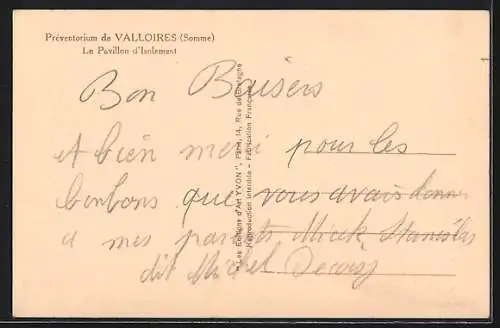 Préventorium de VALLOIRES (Somme)
Le Pavillon d'Isolement
Bon Baisers
et bien merci pour les
bonbons que vous avais donner
a mes parents, Micek, Stanislas
dit Michel
"Les Editions d'Art YVON", Paris, 14, Rue de Bretagne
Reproduction Interdite - Fabrication Française